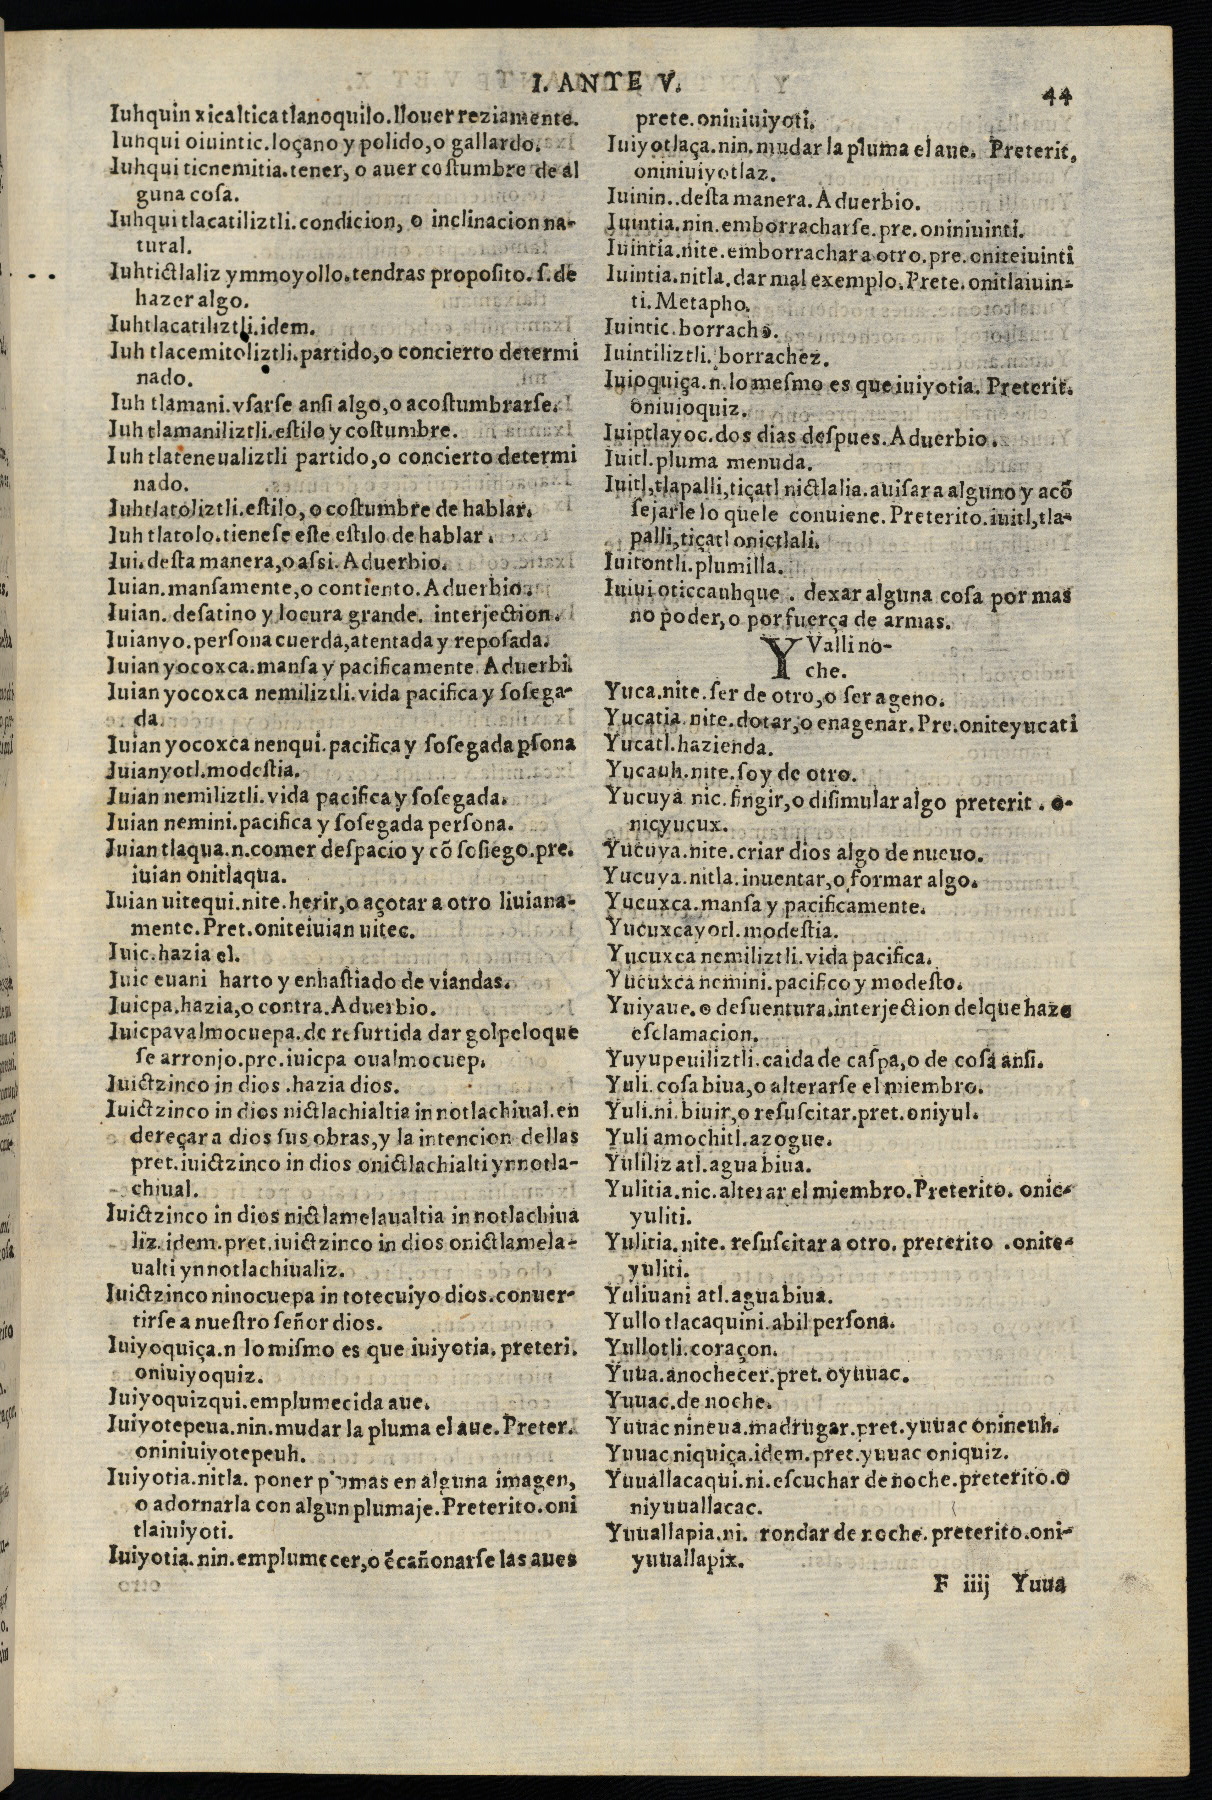 I. ANTE V.
44
Iuhquin xicaltica tlanoquilo. llouer reziamente.
Iuhqui oiuintic. loçano y polido, o gallardo.
Iuhqui ticnemitia. tener, o auer costumbre de al
guna cosa.
Iuhqui tlacatiliztli. condicion, o inclinacion na-
tural.
Iuhtictlaliz ymmoyollo. tendras proposito. s. de
hazer algo.
Iuhtlacatiliztli. idem.
Iuh tlacemitoliztli. partido, o concierto determi
nado.
Iuh tlamani. vsarse ansi algo, o acostumbrarse.
Iuh tlamaniliztli. estilo y costumbre.
Iuh tlateneualiztli partido, o concierto determi
nado.
Iuhtlatoliztli. estilo, o costumbre de hablar.
Iuh tlatolo. tienese este estilo de hablar.
Iui. desta manera, o assi. Aduerbio.
Iuian. mansamente, o con tiento. Aduerbio.
Iuian. desatino y locura grande. interjection.
Iuianyo. persona cuerda, atentada y reposada.
Iuian yocoxca. mansa y pacificamente. Aduerbi.
Iuian yocoxca nemiliztli. vida pacifica y sosega-
da.
Iuian yocoxca nenqui. pacifica y sosegada psona
Iuianyotl. modestia.
Iuian nemiliztli. vida pacifica y sosegada.
Iuian nemini. pacifica y sosegada persona.
Iuian tlaqua. n. comer despacio y cõ sosiego. pre.
iuian onitlaqua.
Iuian uitequi. nite. herir, o açotar a otro liuiana-
mente. Pret. oniteiuian uitec.
Iuic. hazia el.
Iuic euani harto y enhastiado de viandas.
Iuicpa. hazia, o contra. Aduerbio.
Iuicpavalmocuepa. de resurtida dar golpe loque
se arronjo. pre. iuicpa oualmocuep.
Iuictzinco in dios. hazia dios.
Iuictzinco in dios nictlachialtia in notlachiual. en
dereçar a dios sus obras, y la intencion dellas
pret. iuictzinco in dios onictlachialti ynnotla-
chiual.
Iuictzinco in dios nictlamelaualtia in notlachiua
liz. idem. pret. iuictzinco in dios onictlamela-
ualti ynnotlachiualiz.
Iuictzinco ninocuepa in totecuiyo dios. conuer-
tirse a nuestro señor dios.
Iuiyoquiça. n lo mismo es que iuiyotia. preteri.
oniuiyoquiz.
Iuiyoquizqui. emplumecida aue.
Iuiyotepeua. nin. mudar la pluma el aue. Preter.
oniniuiyotepeuh.
Iuiyotia. nitla. poner plumas en alguna imagen,
o adornarla con algun plumaje. Preterito. oni
tlaiuiyoti.
Iuiyotia. nin. emplumecer, o ẽcañonarse las aues
prete. oniniuiyoti.
Iuiyotlaça. nin. mudar la pluma el aue. Preterit.
oniniuiyotlaz.
Iuinin.. desta manera. Aduerbio.
Iuintia. nin. emborracharse. pre. oniniuinti.
Iuintia. nite. emborrachar a otro. pre. oniteiuinti
Iuintia. nitla. dar mal exemplo. Prete. onitlaiuin-
ti. Metapho.
Iuintic. borracho.
Iuintiliztli. borrachez.
Iuioquiça. n. lo mesmo es que iuiyotia. Preterit.
oniuioquiz.
Iuiptlayoc. dos dias despues. Aduerbio.
Iuitl. pluma menuda.
Iuitl, tlapalli, tiçatl nictlalia. auisar a alguno y acõ
sejarle lo quele conuiene. Preterito. iuitl, tla-
palli, tiçatl onictlali.
Iuitontli. plumilla.
Iuiui oticcauhque. dexar alguna cosa por mas
no poder, o por fuerça de armas.
YValli no-
che.
Yuca. nite. ser de otro, o ser ageno.
Yucatia. nite. dotar, o enagenar. Pre. oniteyucati
Yucatl. hazienda.
Yucauh. nite. soy de otro.
Yucuya nic. fingir, o disimular algo preterit. o-
nicyucux.
Yucuya. nite. criar dios algo de nueuo.
Yucuya. nitla. inuentar, o formar algo.
Yucuxca. mansa y pacificamente.
Yucuxcayotl. modestia.
Yucuxca nemiliztli. vida pacifica.
Yucuxca nemini. pacifico y modesto.
Yuiyaue. o desuentura. interjection delque haze
esclamacion.
Yuyupeuiliztli. caida de caspa, o de cosa ansi.
Yuli. cosa biua, o alterarse el miembro.
Yuli. ni. biuir, o resuscitar. pret. oniyul.
Yuli amochitl. azogue.
Yuliliz atl. agua biua.
Yulitia. nic. alterar el miembro. Preterito. onic-
yuliti.
Yulitia. nite. resuscitar a otro. preterito. onite-
yuliti.
Yuliuani atl. agua biua.
Yullo tlacaquini. abil persona.
Yullotli. coraçon.
Yuua. anochecer. pret. oyuuac.
Yuuac. de noche.
Yuuac nineua. madrugar. pret. yuuac onineuh.
Yuuac niquiça. idem. pret. yuuac oniquiz.
Yuuallacaqui. ni. escuchar de noche. preterito. o
niyuuallacac.
Yuuallapia. ni. rondar de noche. preterito. oni-
yuuallapix.
F iiij Yuua